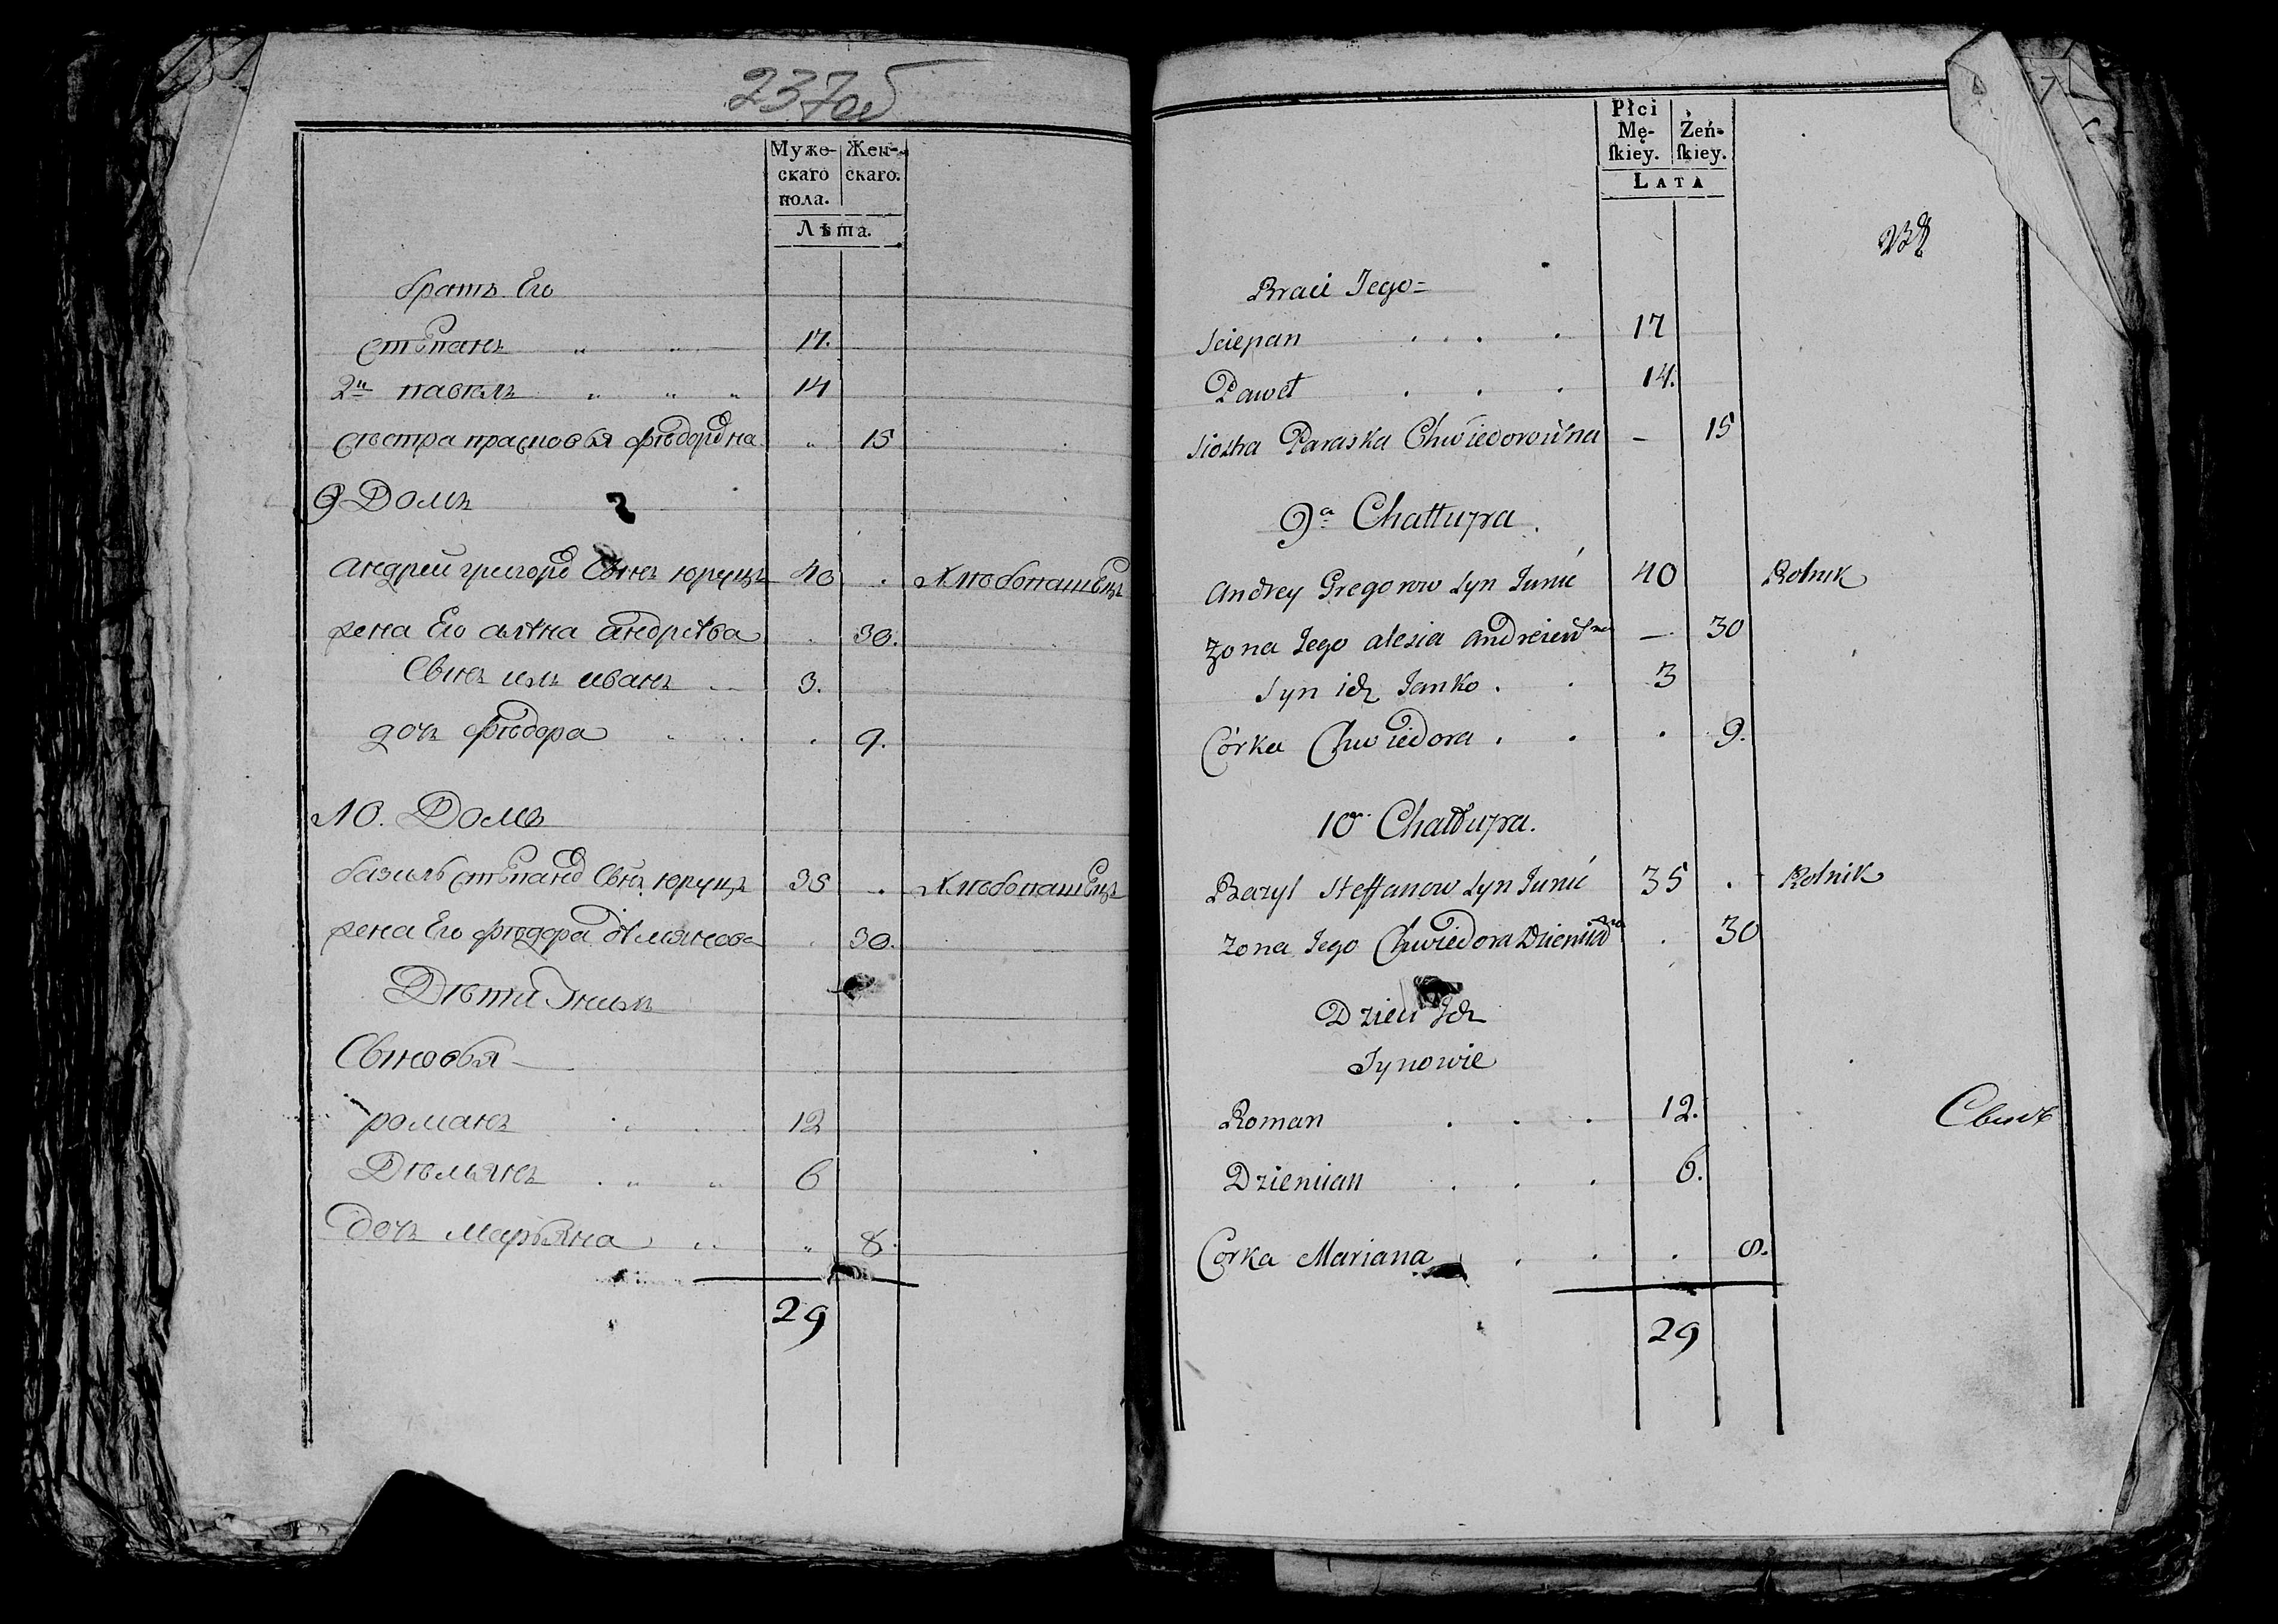 237об
Муже- Жен-
скаго скаго.
пола.
Лѣта.
братъ Его
Стѣпанъ 17.
2й павелъ 14
сѣстра прасковья фѣдоровна 15
9 Домъ
андрей григоров Сынъ юруць 40 Хлѣбопашецъ
жена Его алѣна андреѣва 30.
Сынъ ихъ иванъ 3.
дочъ фѣдора 9.
10. Домъ
базиль стѣпанов Сынъ юруць 35 Хлѣбопашецъ
жена Его фѣдора дѣмянова 30.
Дѣти Ихъ
Сыновья
романъ 12
Дѣмьянъ 6
дочъ марьяна 8.
29
Płci
Mę- Żeń-
ſkiey. ſkiey.
LATA
238
Braci Jego =
Sciepan 17
Paweł 14.
Siostra Paraska Chwiedorowna — 15
9a Chałłupa.
Andrey Gregorow Syn Juruć 40 Rolnik
Zona Jego alesia andreiewna — 30
Syn ich Janko 3
Córka Chwiedora 9.
10a Chałłupa.
Bazyl Steffanow Syn Juruć 35 Rolnik
Zona Jego Chwiedora 30
Dzieci Ich
Synowie
Roman 12.
Dziemian 6.
Corka Mariana 8.
29